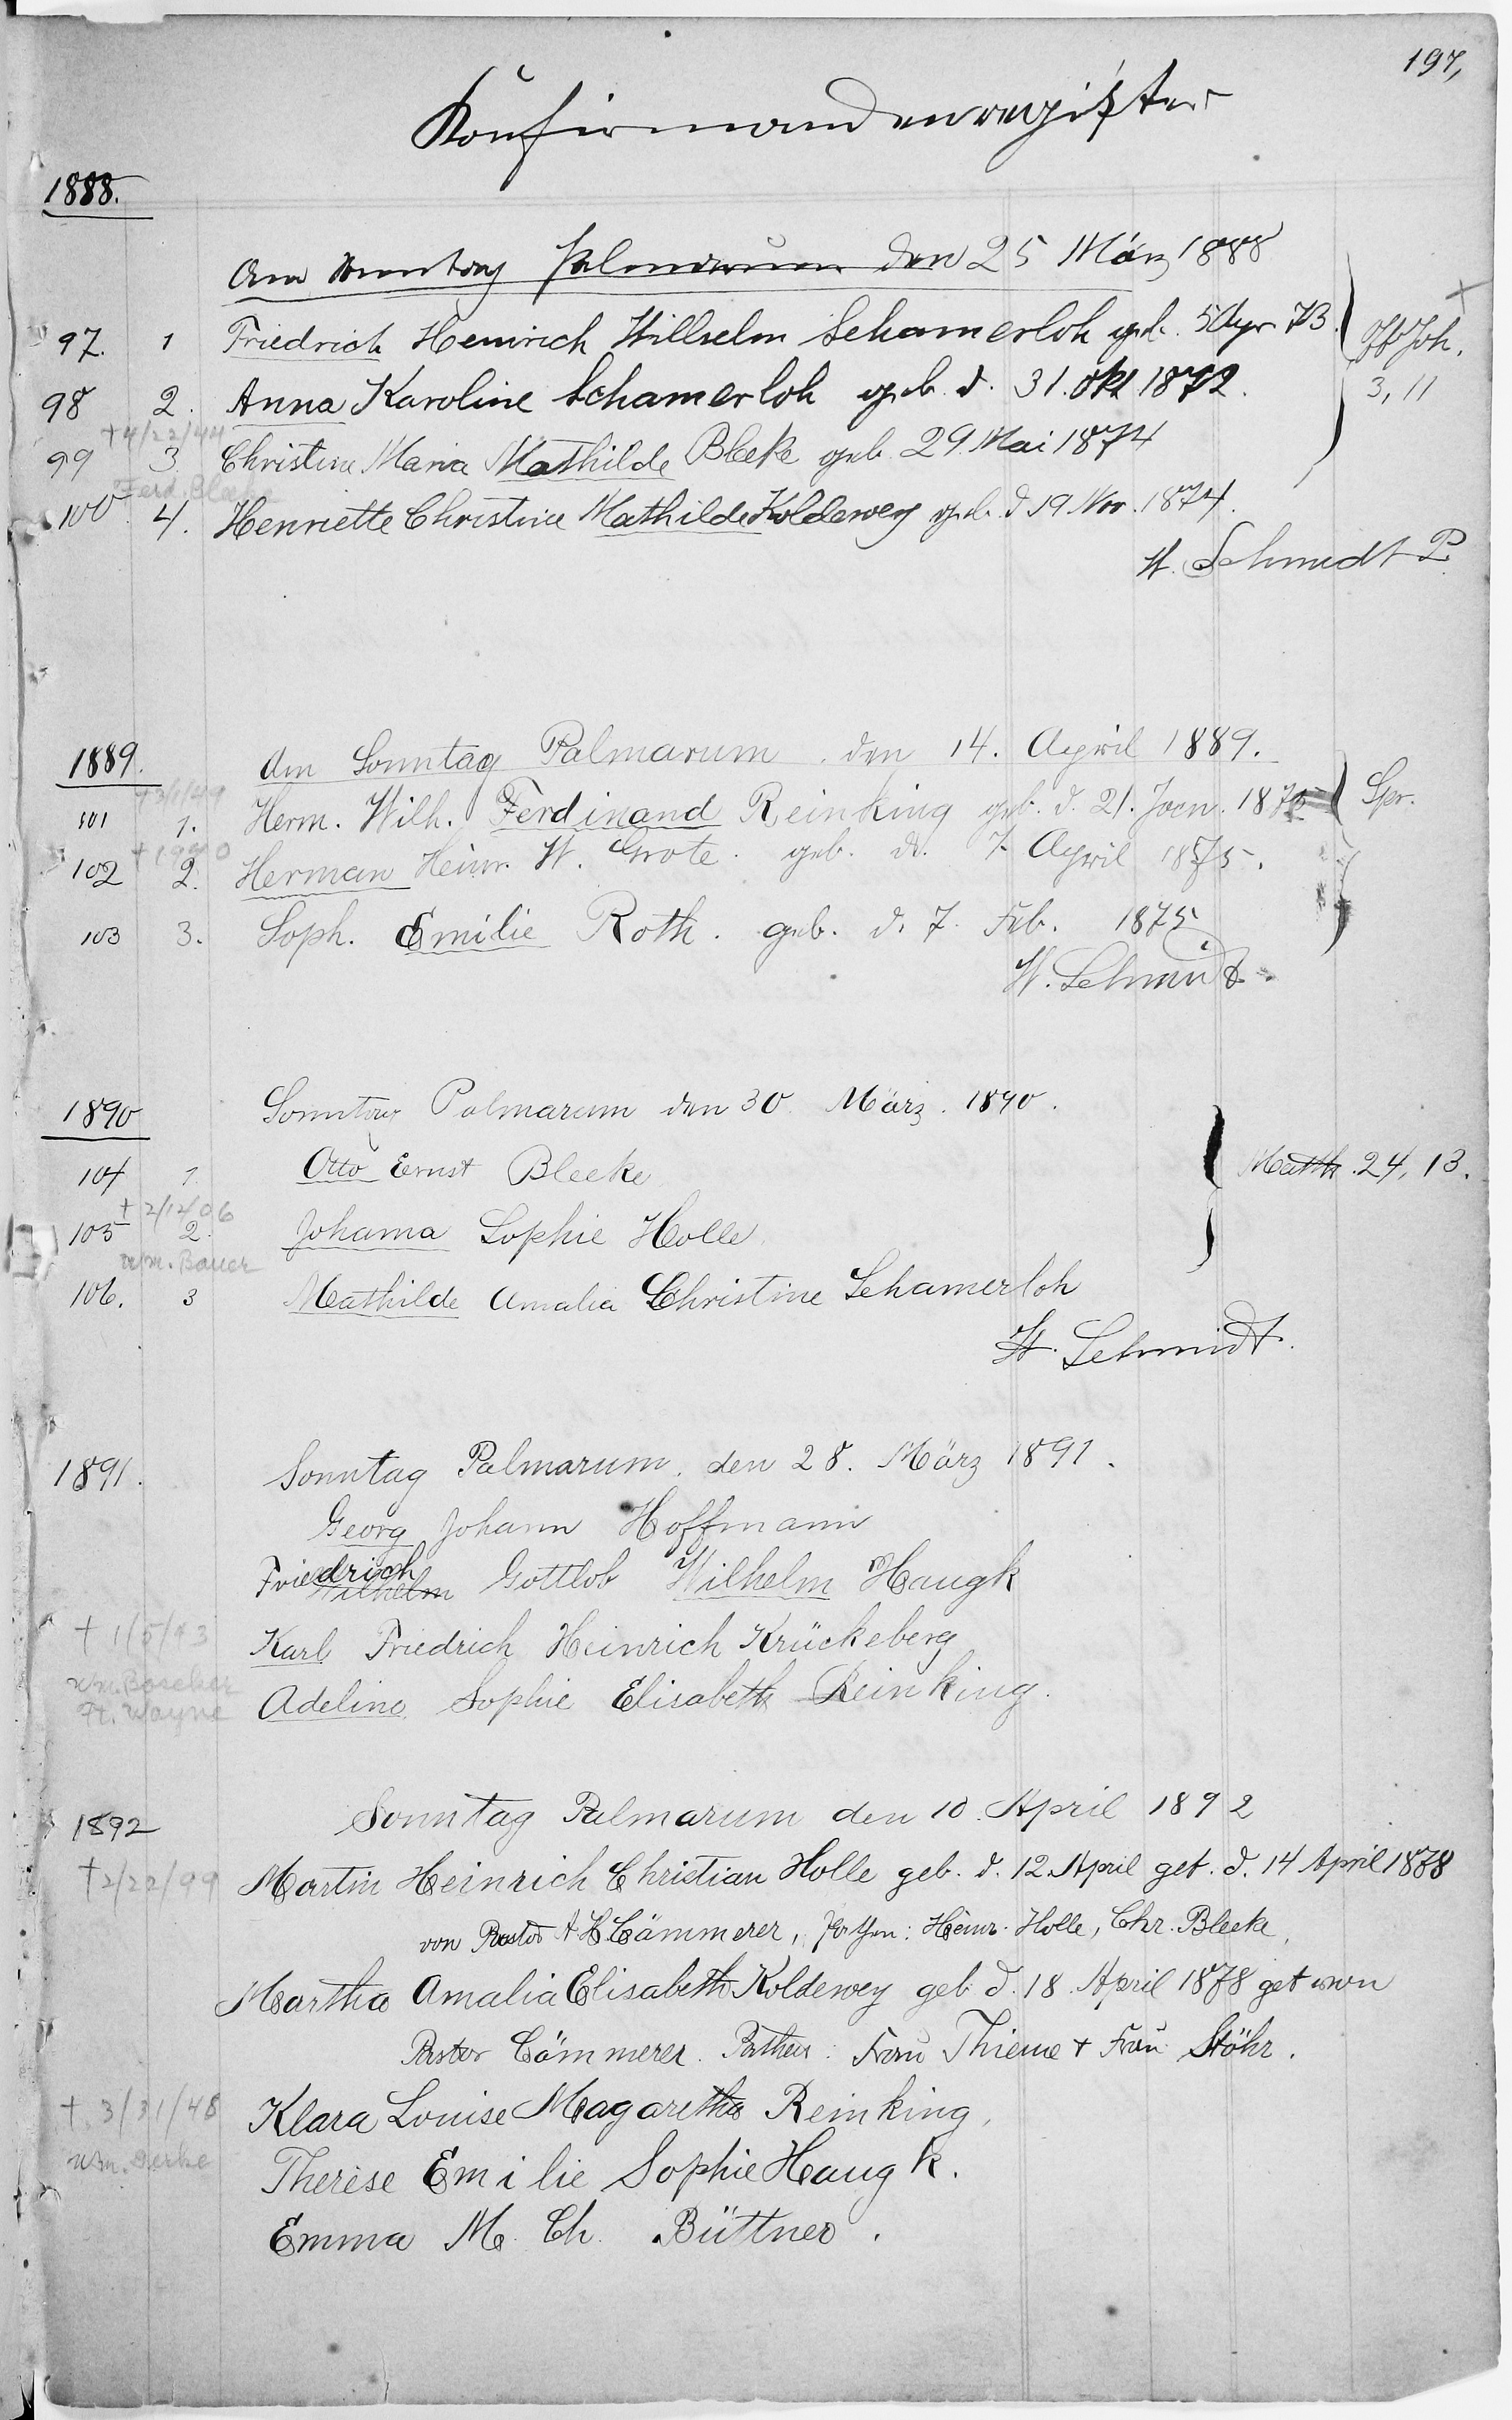 197,
Konfirmandenregister
1888.
Am Sonntag Palmarum den 25 März 1888
97. 1 Friedrich Heinrich Willhelm Schamerloh geb. 5 Apr 73. Off Joh.
98 2. Anna Karoline Schamerloh geb. d. 31. Okt 1872. 3, 11
† 4/22/44
99 3. Christine Maria Mathilde Bleeke geb. 29. Mai 1874
Ferd. Bleeke
100 4. Henriette Christine Mathilde Koldewey geb. d 19 Nov. 1874.
W. Schmidt P.
1889. Am Sonntag Palmarum den 14. April 1889.
101 1. Herm. Wilh. Ferdinand Reinking geb. d. 21. Jan. 1875 Spr.
† 1940
102 2. Herman Heinr. W. Grote. geb. d. 7. April 1875.
103 3. Soph. Emilie Roth. geb. d. 7. Feb. 1875
W. Schmidt
1890 Sonntag Palmarum den 30. März. 1890.
104 1 Otto Ernst Bleeke Matth. 24, 13.
† 2/12/06
105 2. Johanna Sophie Holle
Wm. Bauer
106. 3 Mathilde Amalia Christine Schamerloh
W. Schmidt.
1891. Sonntag Palmarum. den 28. März 1891.
Georg Johann Hoffmann
Friedrich Wilhelm Gottlob Wilhelm Haugk
† 1/5/93 Karl Friedrich Heinrich Krückeberg
Wm. Boseker Adeline Sophie Elisabeth Reinking.
Ft. Wayne
1892 Sonntag Palmarum den 10. April 1892
† 2/22/99 Martin Heinrich Christian Holle geb. d. 12. April get. d. 14 April 1878
von Pastor Cämmerer, Pathen: Heinr. Holle, Chr. Bleeke,
Martha Amalia Elisabeth Koldewey geb d. 18. April 1878 get von
Pastor Cämmerer. Pathen: Frau Thieme + Frau Stöhr.
† 3/31/48 Klara Louise Magaretha Reinking,
Wm. Gerke Therese Emilie Sophie Haugk.
Emma M. Ch. Büttner.